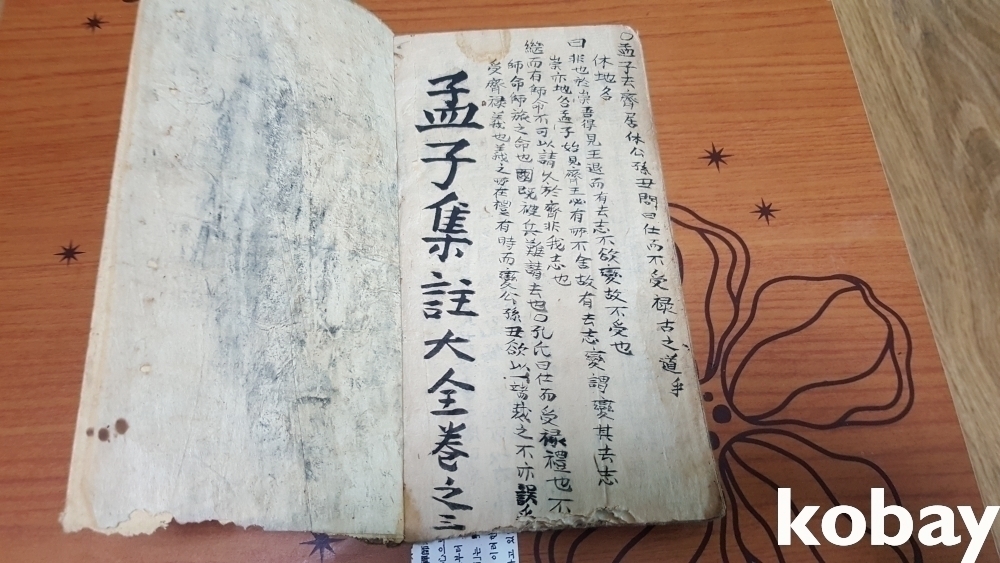 〇孟子去齊居休公孫丑問曰仕而不受禄古之道乎
休地名
曰非也於崇吾得見王退而有去志不欲變故不受也
崇亦地名孟子始見齊王必有所不舍故有去志變謂變其去志
繼而有師命不可以請久於齊非我志也
師命師旅之命也國既被兵難請去也〇孔氏曰仕而受祿禮也不
受齊祿義也義之所在禮有時而變公孫丑欲以一端裁之不亦誤乎
孟子集註大全卷之三
kobay